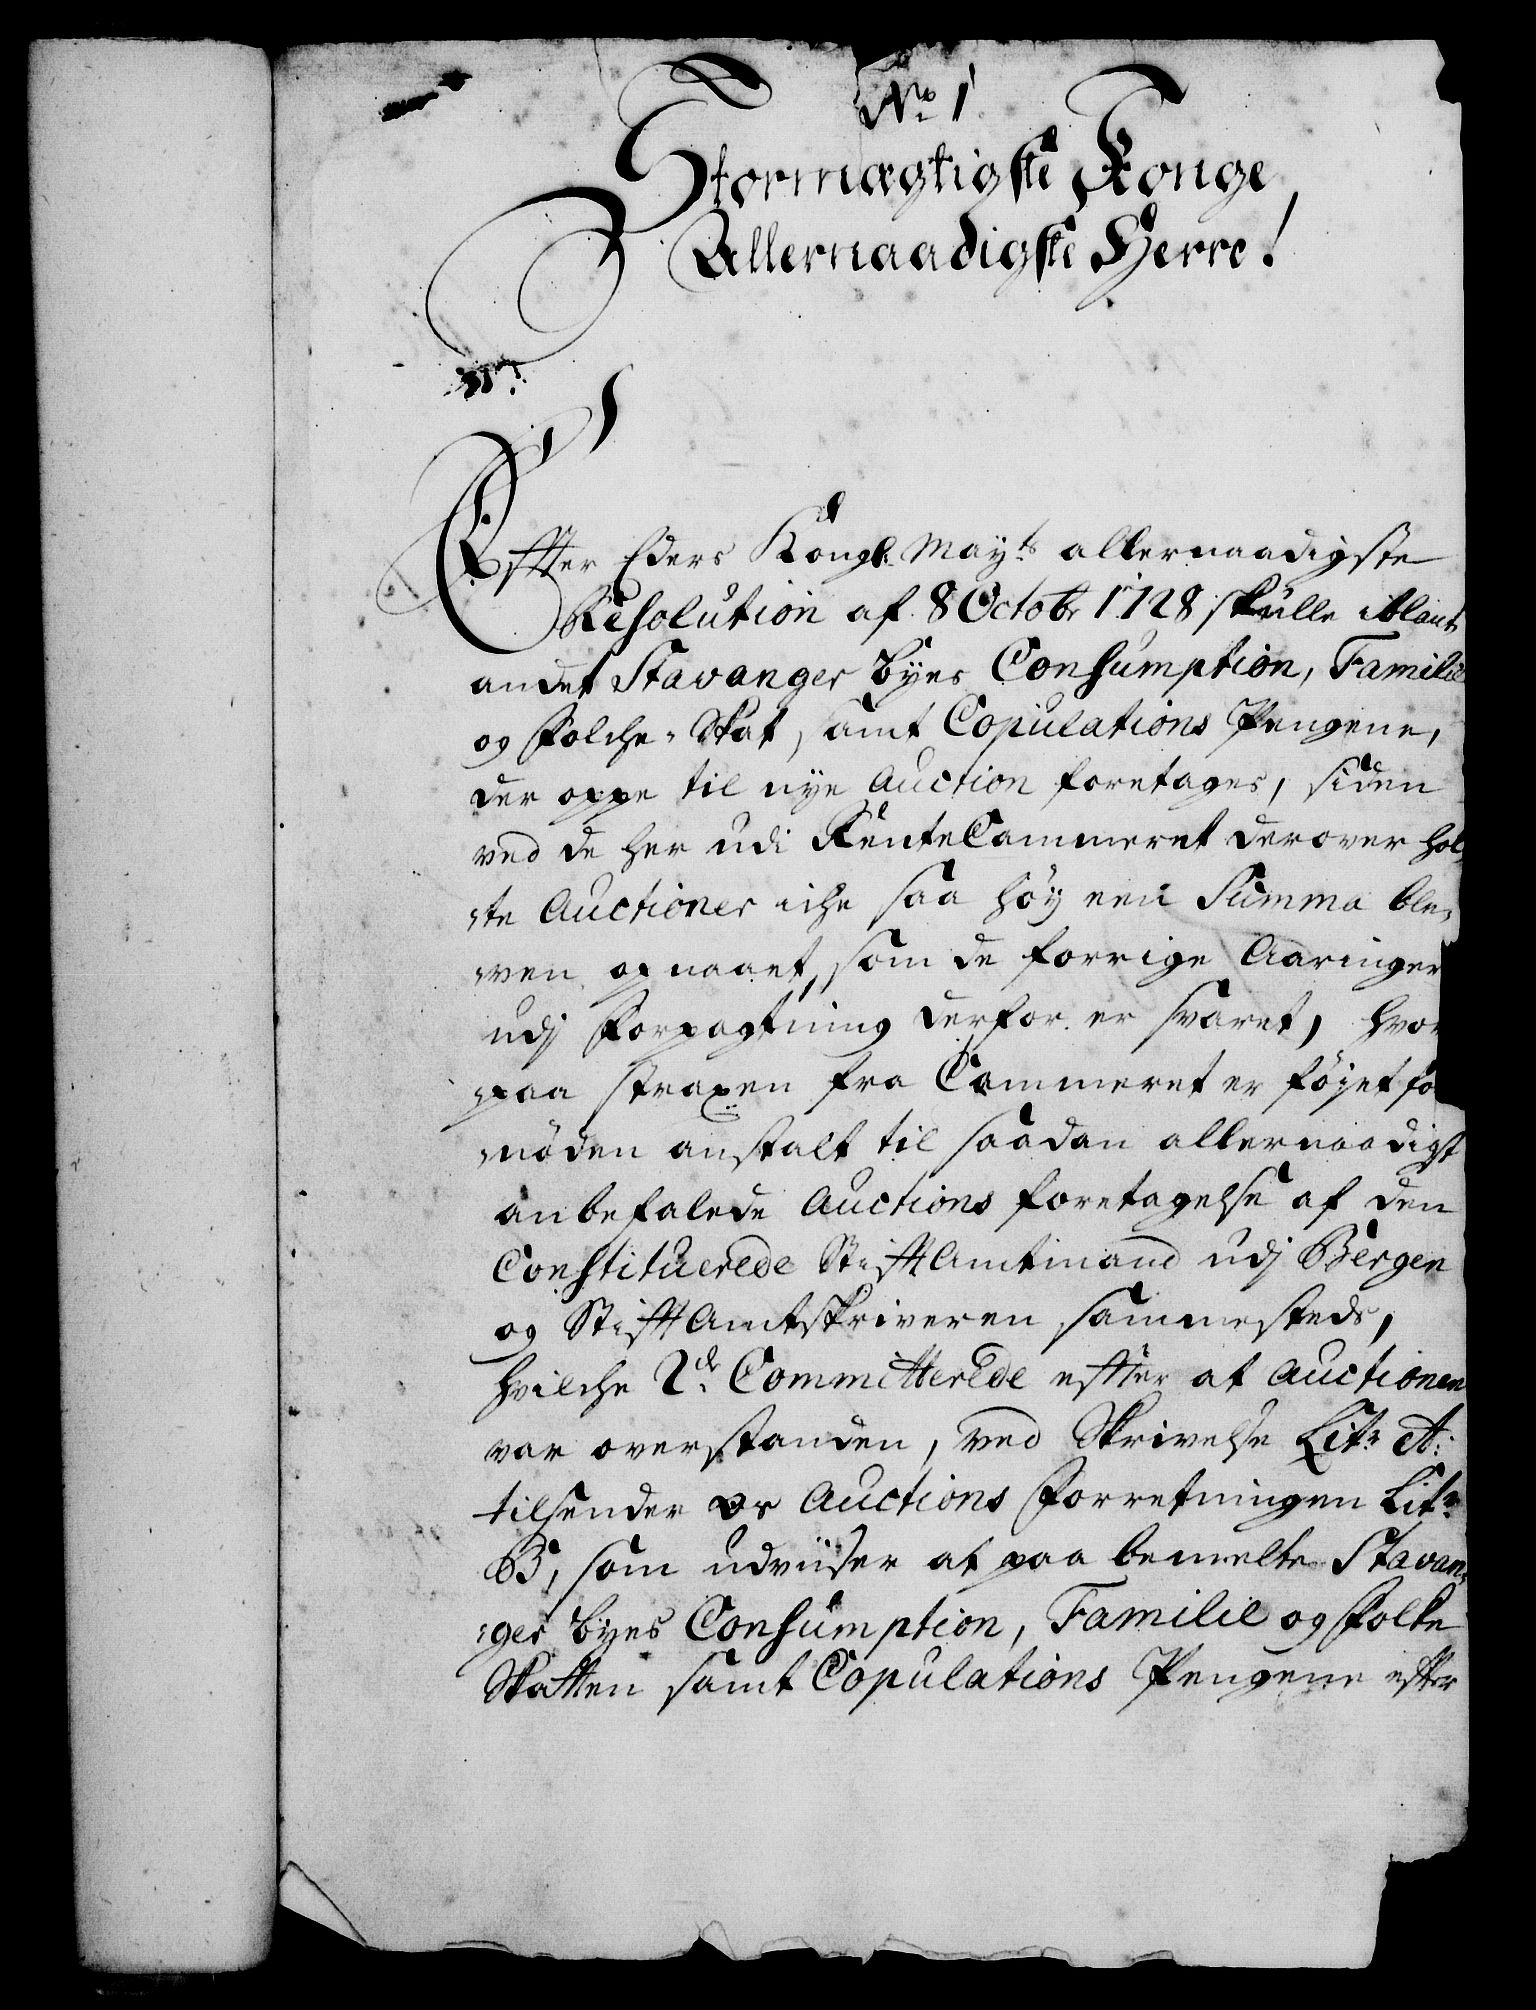 No 1
Stormægtigste Konge,
Allernaadigste Herre!
Effter Eders Kongl. Mayts allernaadigste
Resolution af 8 Octobr 1728 skulle iblant
andet Stavanger byes Consumption, Familie
og Folche-Skat, samt Copulations Pengene,
der oppe til nye Auction foretages, siden
ved de her udi RenteCammeret derover hol-
te Auctioner iche saa höy een Summa ble-
ven opnaaet, som de forrige Aaringer
udj Forpagtning derfor er svaret, hvor
paa straxen fra Cammeret er föyet for
nöden anstalt til saadan allernaadigst
anbefalede Auctions foretagelse af den
Constituerede StifftAmtmand udj Bergen
og StifftAmtskriveren sammesteds,
hvilche 2de Committerede effter at Auctionen
var overstanden, ved Skrivelse Litr A:
tilsender os Auctions Forretningen Litr
B, som udviiser at paa bemelte Stavan-
ger byes Consumption, Familie og Folke
Skatten samt Copulations Pengene effter